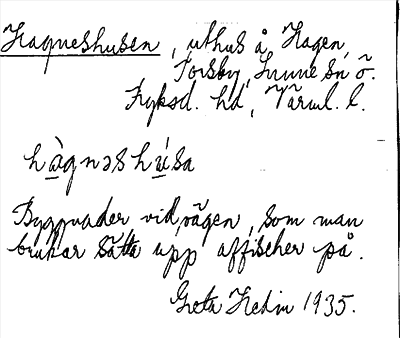 Hagneshusen, uthus å Hagen,
Torsby, Sunne sn ö.
Fryksd. hd, Värml. l.
hàgnəshúsa
Byggnader vid vägen, som man
brukar sätta upp affischer på.
Greta Hedin 1935.